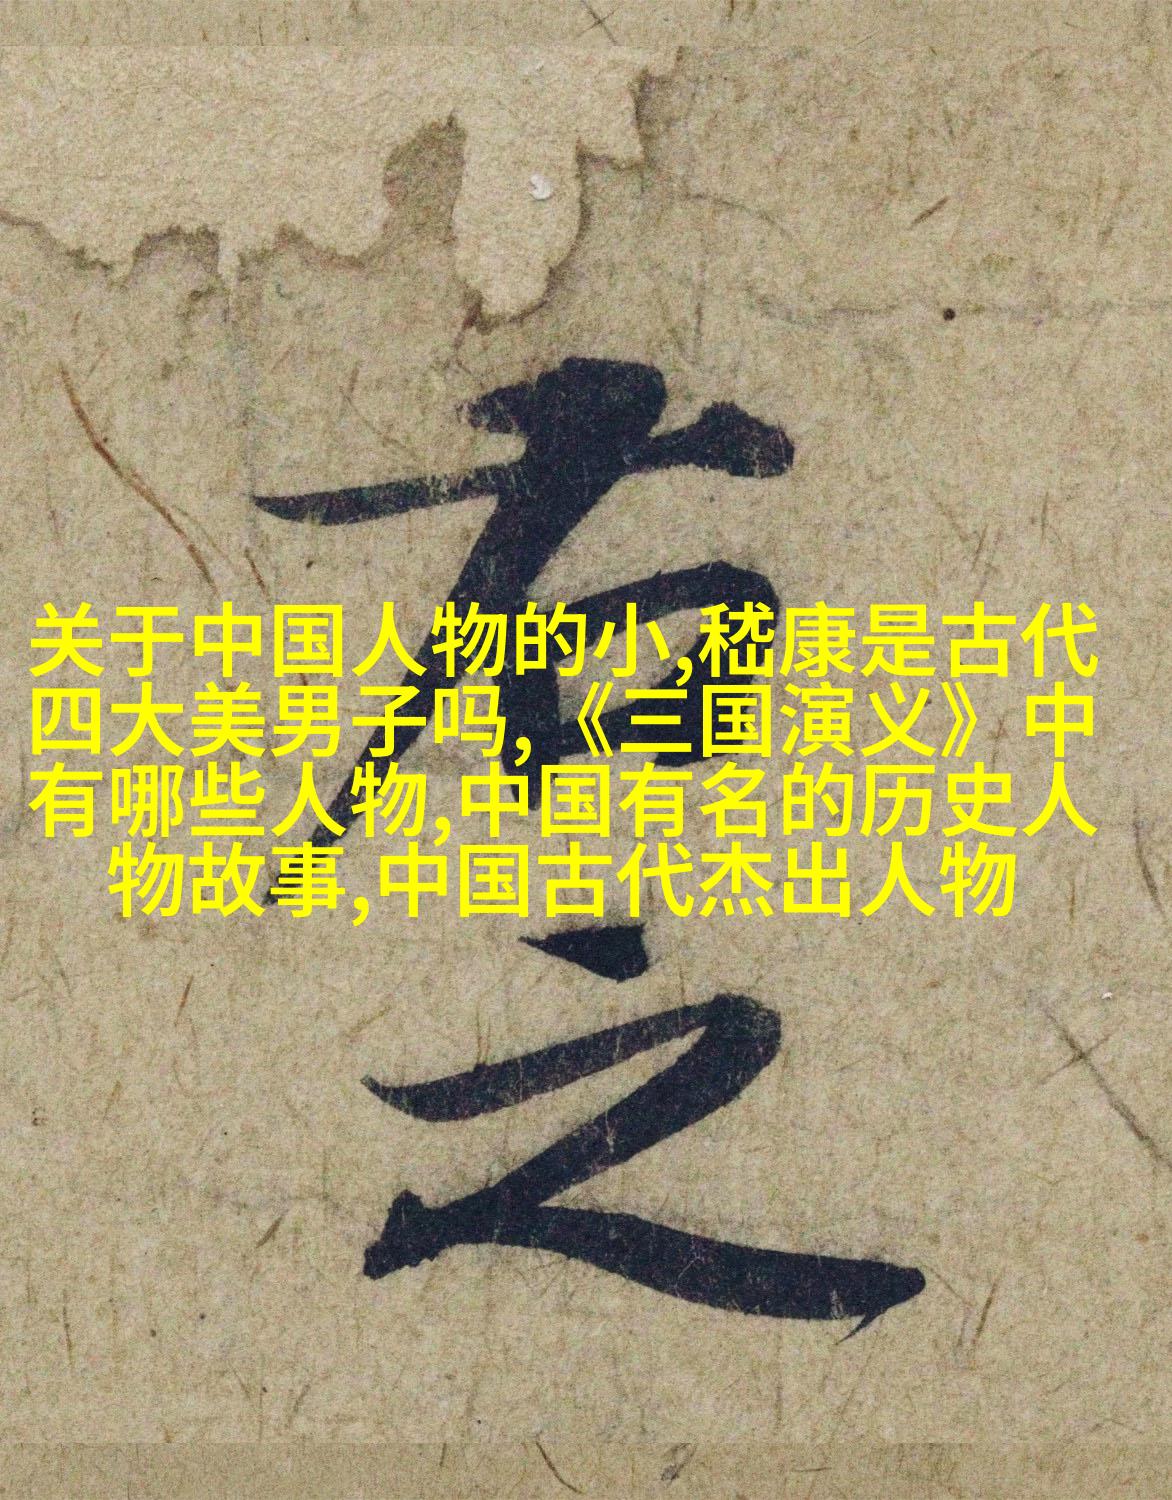 关于中国人物的小,嵇康是古代
四大美男子吗,《三国演义》中
有哪些人物,中国有名的历史人
物故事,中国古代杰出人物
之